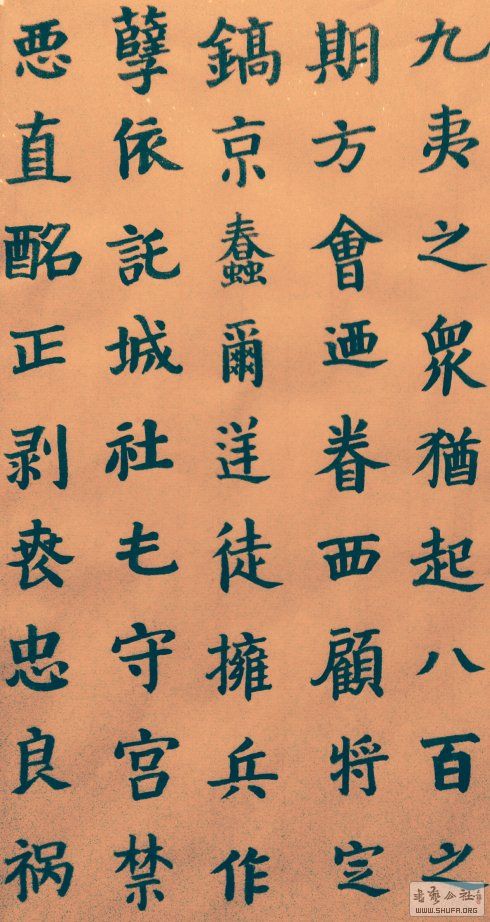 九夷之眾猶起八百之
期方會迺眷西顧将定
鎬京蠢爾逆徒擁兵作
孽依託城社屯守宮禁
悪直酩正剥丧忠良祸
書藝公社
WWW.SHUFA.ORG